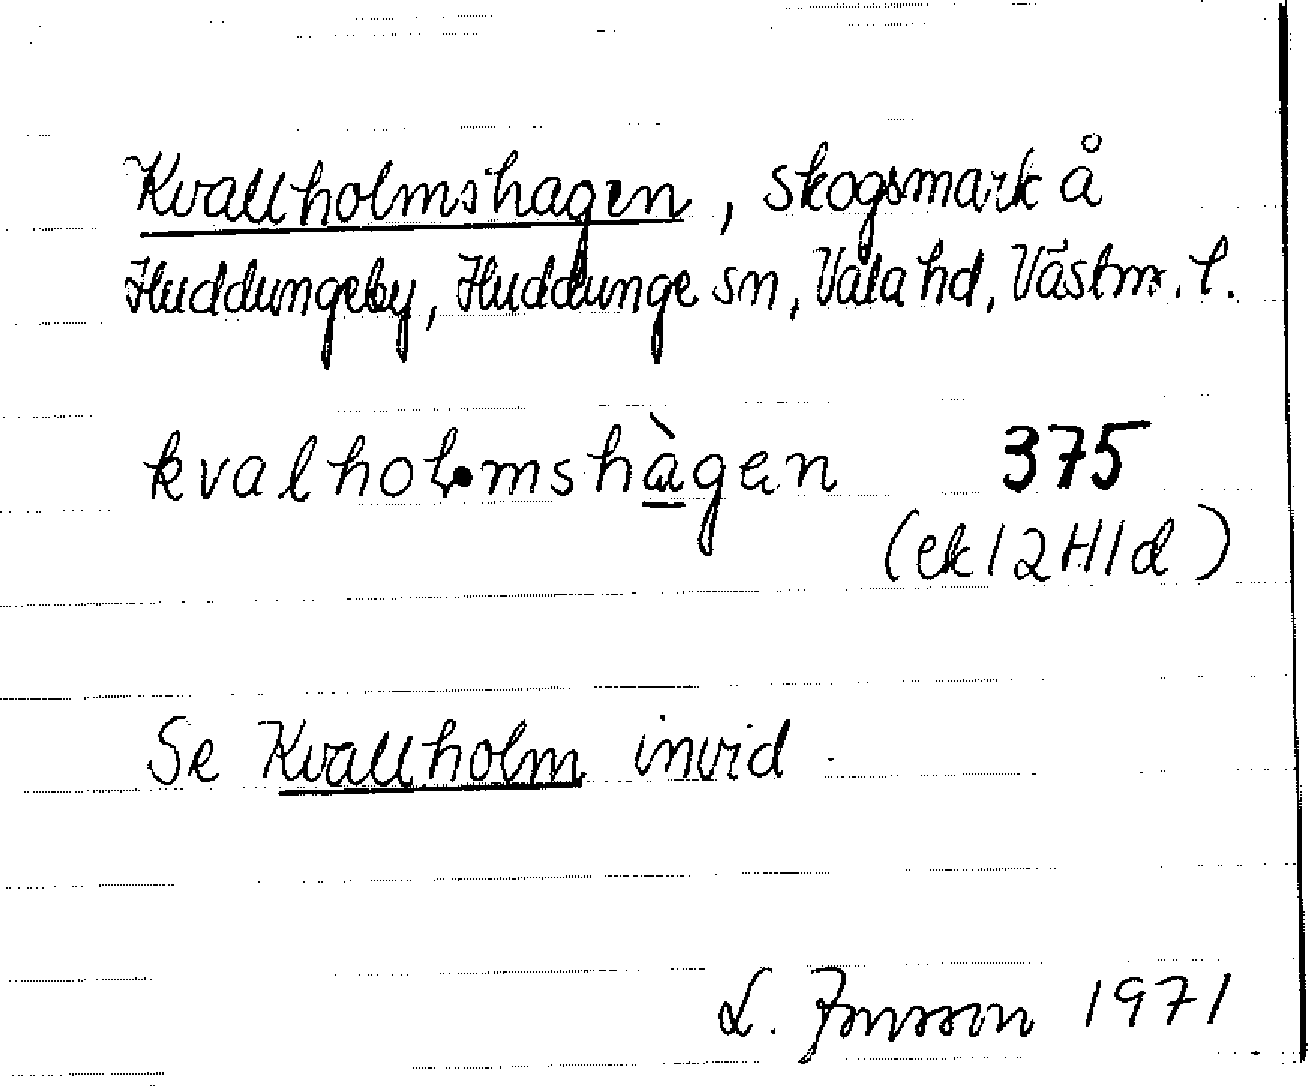 Kvallholmshagen, skogsmark å
Huddungeby, Huddunge sn, Våla hd, Västm. l.
kvalhol•mshàgen 375
(ek 12H1d)
Se Kvallholm invid
L. Jonsson 1971